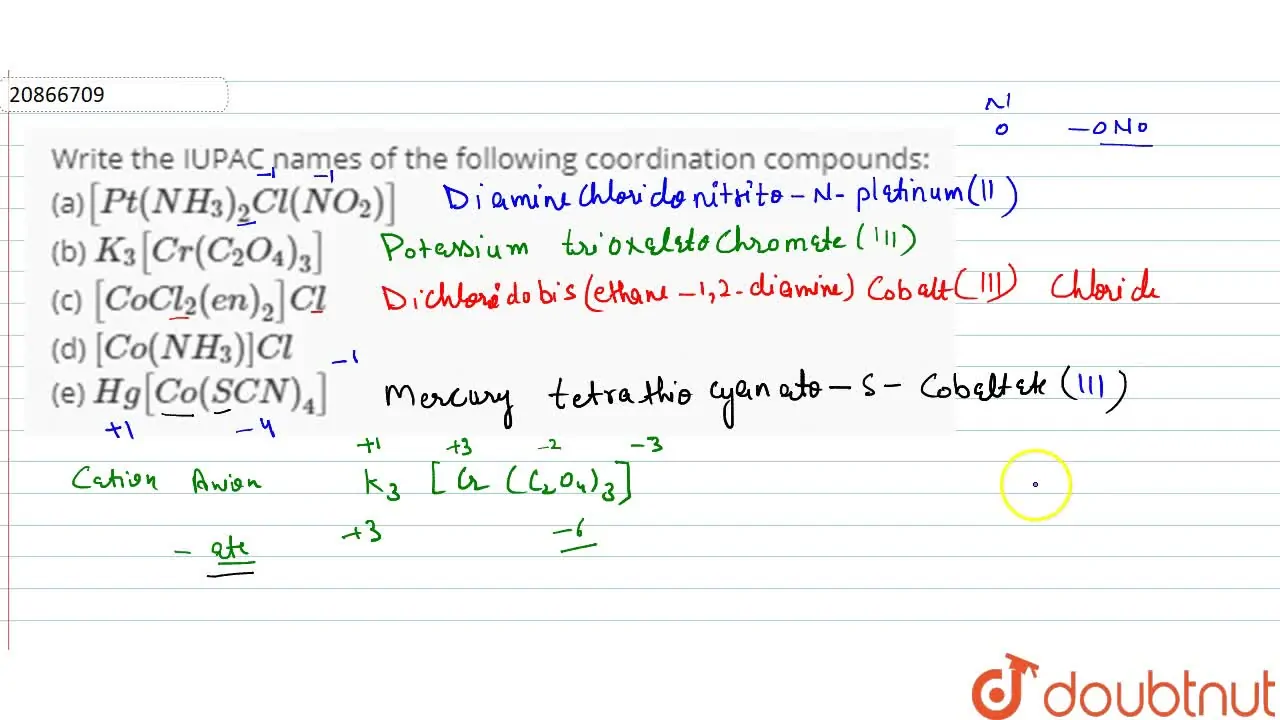 20866709
N
O -ONO
Write the IUPAC names of the following coordination compounds:
-1 -1
(a) [Pt(NH₃)₂Cl(NO₂)] Diamine chlorido nitrito-N-platinum(II)
(b) K₃[Cr(C₂O₄)₃] Potassium trioxalato Chromate (III)
(c) [CoCl₂(en)₂]Cl Dichloridobis(ethane-1,2-diamine) Cobalt(III) Chloride
(d) [Co(NH₃)]Cl
-1
(e) Hg[Co(SCN)₄] Mercury tetrathio cyanato-S-Cobaltate (III)
+1 -4
+1 +3 -2 -3
Cation Anion K₃ [Cr (C₂O₄)₃]
+3 -6
- ate
doubtnut